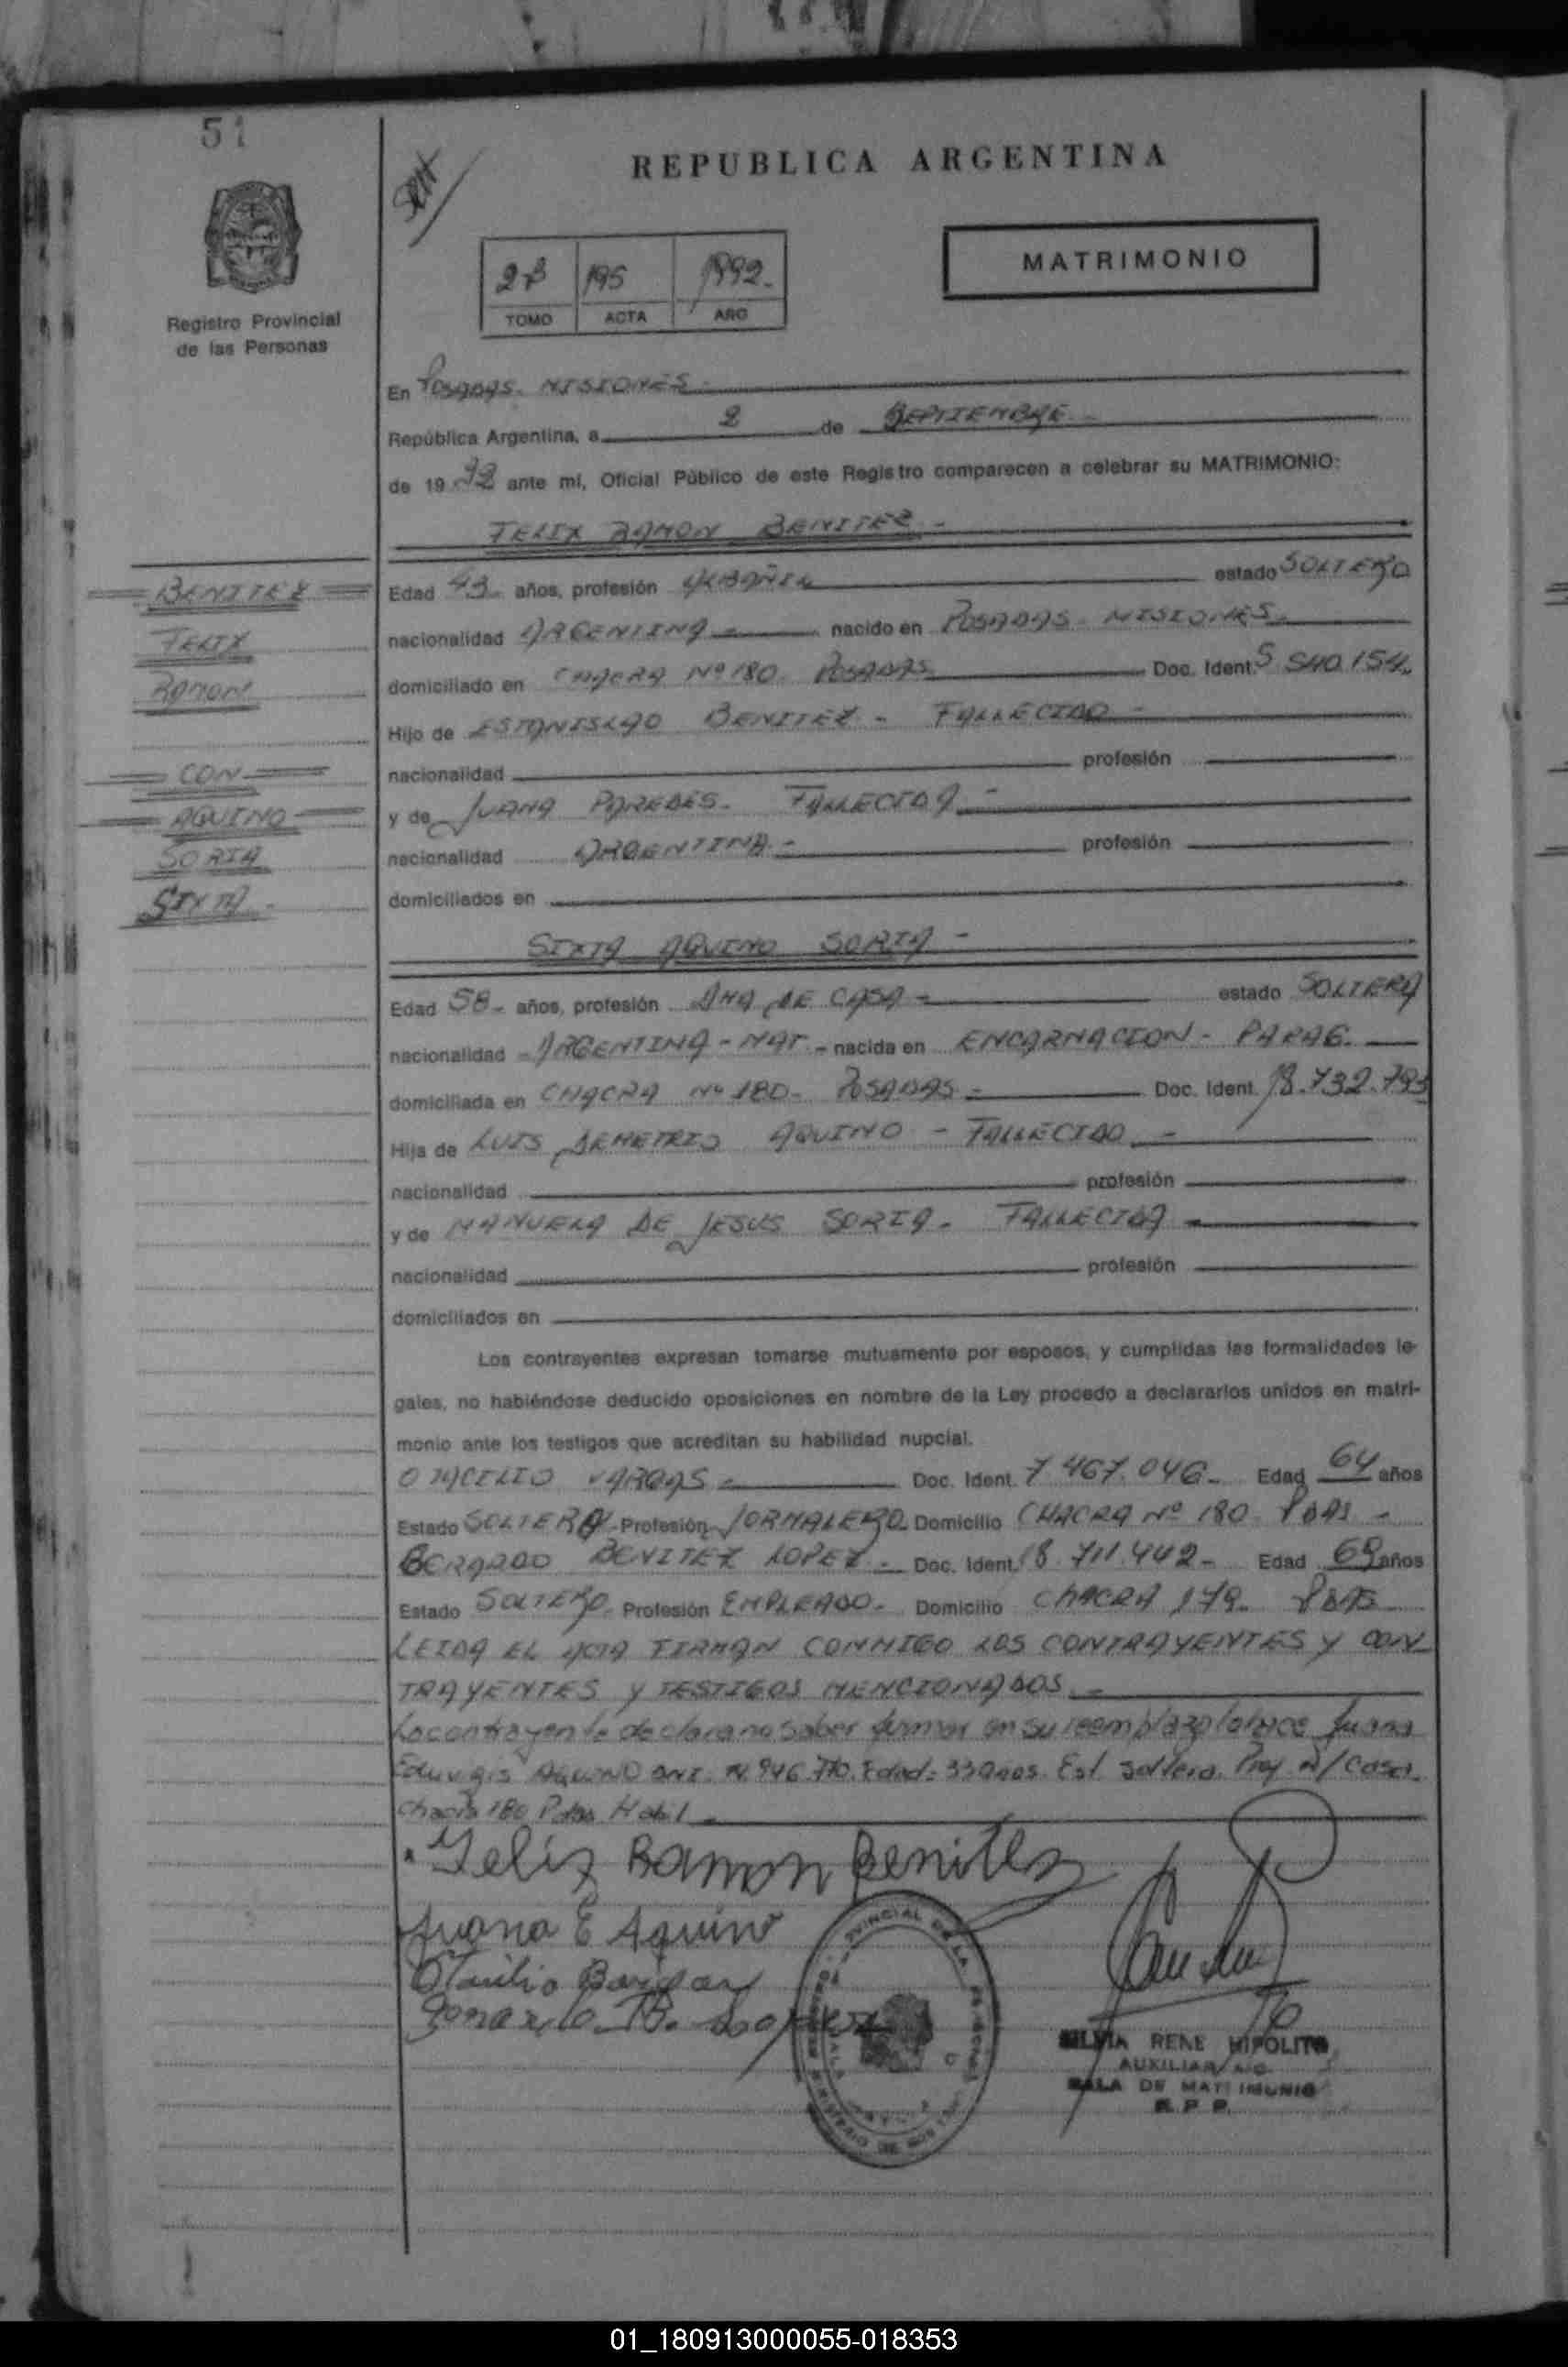 51
REPUBLICA ARGENTINA
MATRIMONIO
195 1992.
TOMO ACTA AÑO
Registro Provincial
de las Personas
En Posadas. MISIONES.
República Argentina, a 2 de SEPTIEMBRE
de 19 92 ante mí, Oficial Público de este Registro comparecen a celebrar su MATRIMONIO:
FELIX RAMON BENITEZ -
BENITEZ
FELIX
RAMON
CON
AQUINO
SORIA
SIXTA -
Edad 43- años, profesión ALBAÑIL estado SOLTERO
nacionalidad ARGENTINA - nacido en POSADAS - MISIONES -
domiciliado en CHACRA Nº 180. POSADAS Doc. Ident. 5.540.154.
Hijo de ESTANISLAO BENITEZ - FALLECIDO -
nacionalidad profesión
y de JUANA PAREDES. FALLECIDA -
nacionalidad ARGENTINA - profesión
domiciliados en
SIXTA AQUINO SORIA -
Edad 58- años, profesión AMA DE CASA - estado SOLTERA
nacionalidad ARGENTINA - NAT - nacida en ENCARNACION - PARAG.
domiciliada en CHACRA Nº 180- POSADAS - Doc. Ident. 18.732.793
Hija de LUIS DEMETRIO AQUINO - FALLECIDO -
nacionalidad profesión
y de MANUELA DE JESUS SORIA - FALLECIDA -
nacionalidad profesión
domiciliados en
Los contrayentes expresan tomarse mutuamente por esposos, y cumplidas las formalidades le-
gales, no habiéndose deducido oposiciones en nombre de la Ley procedo a declararlos unidos en matri-
monio ante los testigos que acreditan su habilidad nupcial.
OTACILIO VARGAS - Doc. Ident. 7.467.046- Edad 64 años
Estado SOLTERO Profesión JORNALERO Domicilio CHACRA Nº 180 PDAS -
BENITEZ LOPEZ - Doc. Ident. 18.711.442- Edad 69 años
Estado SOLTERO Profesión EMPLEADO. Domicilio CHACRA 179. PDAS
LEIDA EL ACTA FIRMAN CONMIGO LOS CONTRAYENTES Y CON
TRAYENTES Y TESTIGOS MENCIONADOS. -
La contrayente declara no saber firmar en su reemplazo lo hace Juana
Eduvigis AQUINO Edad: 33 años. Est. soltera. Prof. Q/ Casa.
Chacra 180 Pdas Habil -
Felix Ramon Benitez
Juana E Aquino
SILVIA RENE HIPOLITO
AUXILIAR A/C
SALA DE MATRIMONIO
R. P. P.
01_180913000055-018353